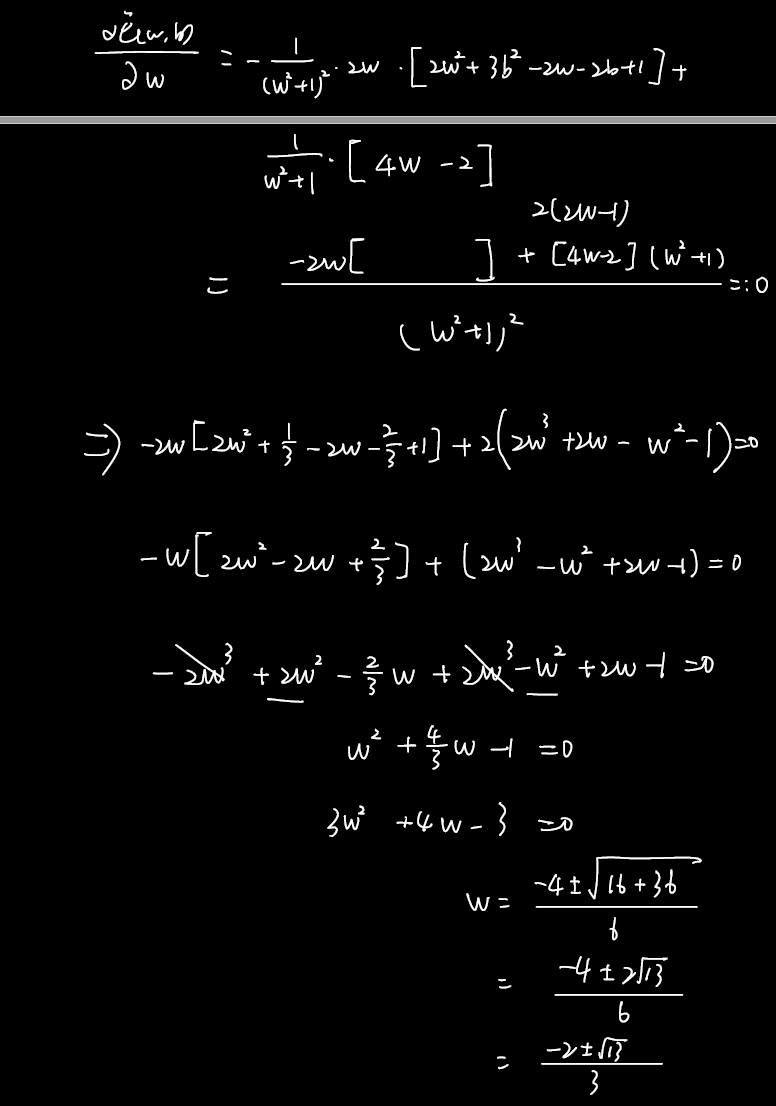 ∂Ẽ(w,b)/∂w = -1/(w²+1)² · 2w · [2w²+3b²-2w-2b+1] +
1/(w²+1) · [4w-2]
2(2w-1)
= (-2w[ ] + [4w-2](w²+1))/(w²+1)² =: 0
⇒ -2w[2w²+1/3-2w-2/3+1]+2(2w³+2w-w²-1)=0
-w[2w²-2w+2/3]+(2w³-w²+2w-1)=0
-2w³+2w²-2/3w+2w³-w²+2w-1=0
w²+4/3w-1=0
3w²+4w-3=0
w=(-4±√(16+36))/6
=(-4±2√13)/6
=(-2±√13)/3